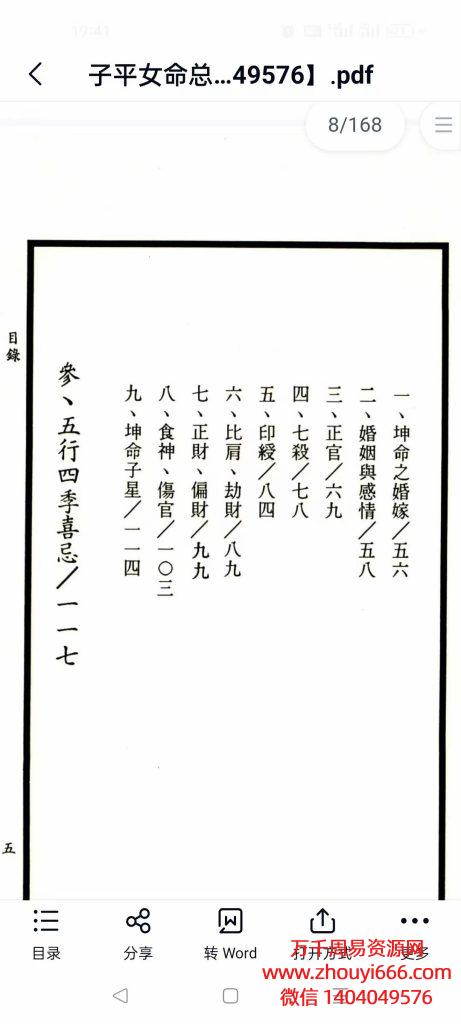 19:41
子平女命总...49576】.pdf
8/168
目錄
一、坤命之婚嫁／五六
二、婚姻與感情／五八
三、正官／六九
四、七殺／七八
五、印綬／八四
六、比肩、劫財／八九
七、正財、偏財／九九
八、食神、傷官／一〇三
九、坤命子星／一一四
參、五行四季喜忌／一一七
五
目录
分享
转 Word
打开方式
更多
万千周易资源网
www.zhouyi666.com
微信 1404049576